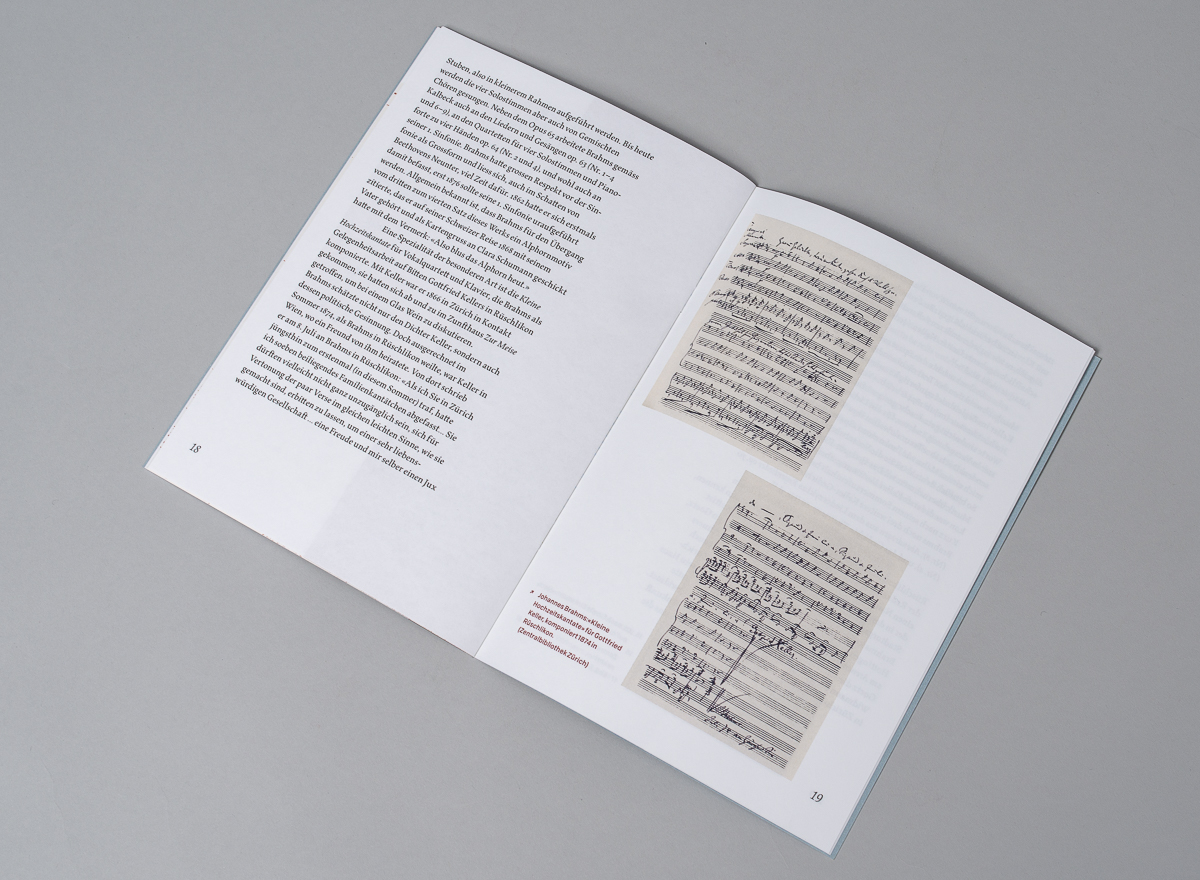 Stuben, also in kleinerem Rahmen aufgeführt werden. Bis heute
werden die vier Solostimmen aber auch von Gemischten
Chören gesungen. Neben dem Opus 65 arbeitete Brahms gemäss
Kalbeck auch an den Liedern und Gesängen op. 63 (Nr. 1–4
und 6–9), an den Quartetten für vier Solostimmen und Piano-
forte zu vier Händen op. 64 (Nr. 2 und 4), und wohl auch an
seiner 1. Sinfonie. Brahms hatte grossen Respekt vor der Sin-
fonie als Grossform und liess sich, auch im Schatten von
Beethovens Neunter, viel Zeit dafür. 1862 hatte er sich erstmals
damit befasst, erst 1876 sollte seine 1. Sinfonie uraufgeführt
werden. Allgemein bekannt ist, dass Brahms für den Übergang
vom dritten zum vierten Satz dieses Werks ein Alphornmotiv
zitierte, das er auf seiner Schweizer Reise 1868 mit seinem
Vater gehört und als Kartengruss an Clara Schumann geschickt
hatte mit dem Vermerk: «Also blus das Alphorn heut.»
Eine Spezialität der besonderen Art ist die Kleine
Hochzeitskantate für Vokalquartett und Klavier, die Brahms als
Gelegenheitsarbeit auf Bitten Gottfried Kellers in Rüschlikon
komponierte. Mit Keller war er 1866 in Zürich in Kontakt
gekommen, sie hatten sich ab und zu im Zunfthaus Zur Meise
getroffen, um bei einem Glas Wein zu diskutieren.
Brahms schätzte nicht nur den Dichter Keller, sondern auch
dessen politische Gesinnung. Doch ausgerechnet im
Sommer 1874, als Brahms in Rüschlikon weilte, war Keller in
Wien, wo ein Freund von ihm heiratete. Von dort schrieb
er am 8. Juli an Brahms in Rüschlikon: «Als ich Sie in Zürich
jüngsthin zum erstenmal (in diesem Sommer) traf, hatte
ich soeben beiliegendes Familienkantätchen abgefasst... Sie
dürften vielleicht nicht ganz unzugänglich sein, sich für
Vertonung der paar Verse im gleichen leichten Sinne, wie sie
gemacht sind, erbitten zu lassen, um einer sehr liebens-
würdigen Gesellschaft ... eine Freude und mir selber einen Jux
18
Johannes Brahms: «Kleine
Hochzeitskantate» für Gottfried
Keller, komponiert 1874 in
Rüschlikon.
(Zentralbibliothek Zürich)
19